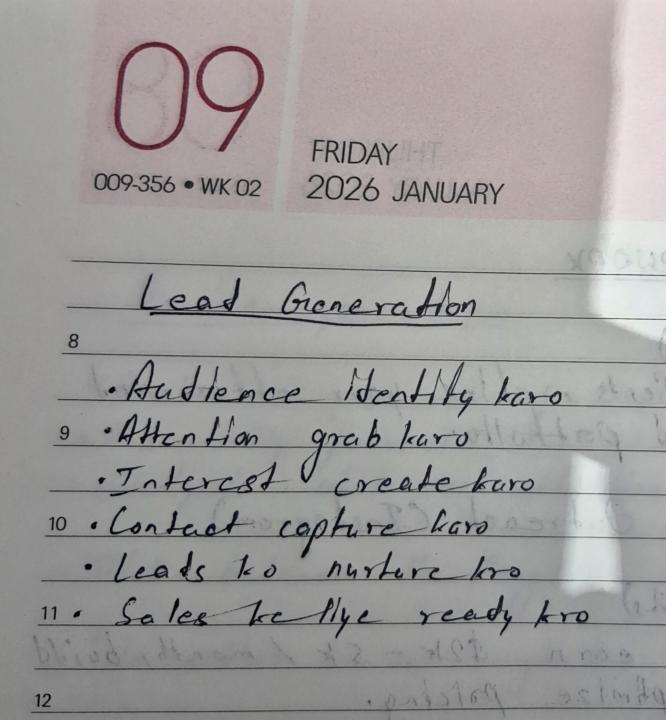 09
009-356 • WK 02
FRIDAY
2026 JANUARY
Lead Generation
8
• Audience identify karo
9 • Attention grab karo
• Interest create karo
10 • Contact capture karo
• Leads ko nurture kro
11 • Sales ke liye ready kro
12